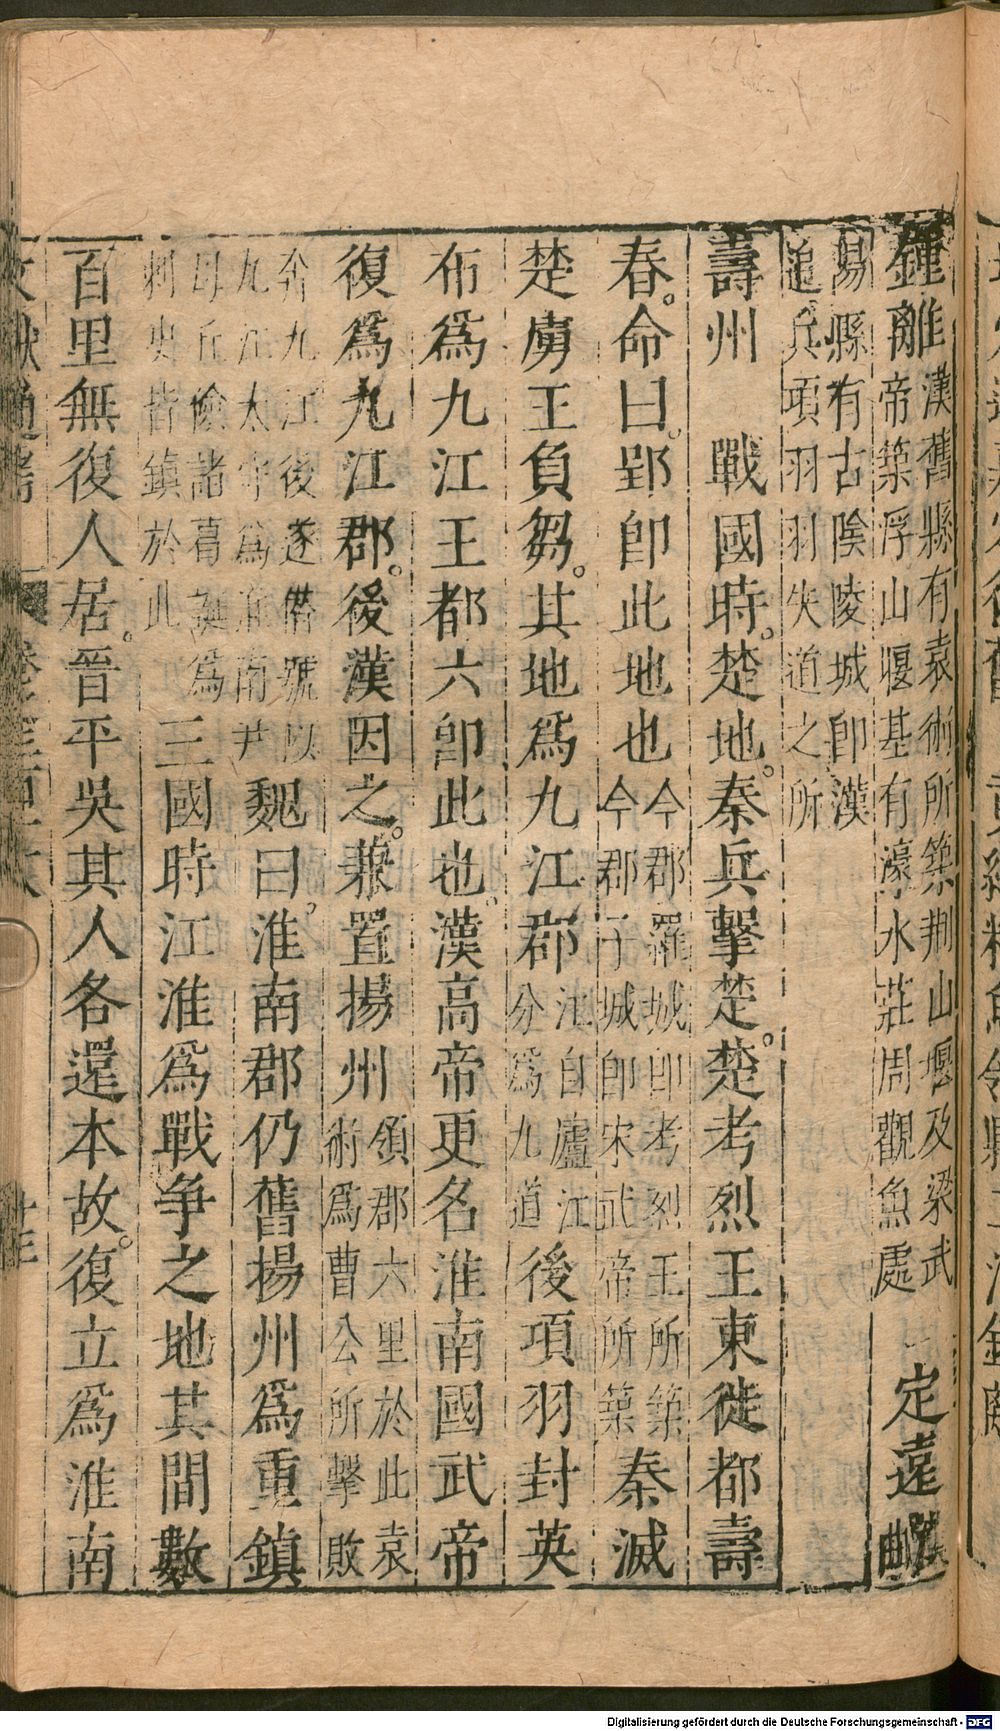 鍾離漢舊縣有袁術所築荆山堰及梁武
帝築浮山堰基有濠水莊周觀魚處
定遠漢
曲
陽縣有古隂陵城卽漢
追。兵項羽羽失道之所
壽州　戰國時。楚地。秦兵擊楚。楚考烈王東徙都壽
春。命曰。郢卽此地也今郡羅城卽考烈王所築
今郡子城卽宋武帝所築
秦滅
楚虜王負芻。其地爲九江郡江自廬江
分爲九道
後項羽封英
布爲九江王都六卽此也。漢高帝更名淮南國武帝
復爲九江郡。後漢因之。兼置揚州領郡六里於此袁
術爲曹公所擊敗
奔九江後遂僣號以
九江太守爲淮南尹
魏曰。淮南郡仍舊揚州爲重鎮
毋丘儉諸葛誕爲
刺史皆鎮於此
三國時江淮爲戰争之地其間數
百里無復人居。晉平吳其人各還本故。復立爲淮南
文獻通考
Digitalisierung gefördert durch die Deutsche Forschungsgemeinschaft - DFG